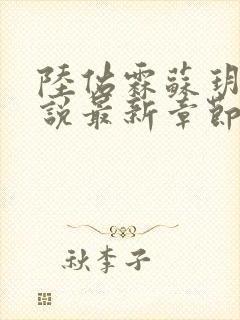 陸佔霖蘇玥
說最新章節
秋李子